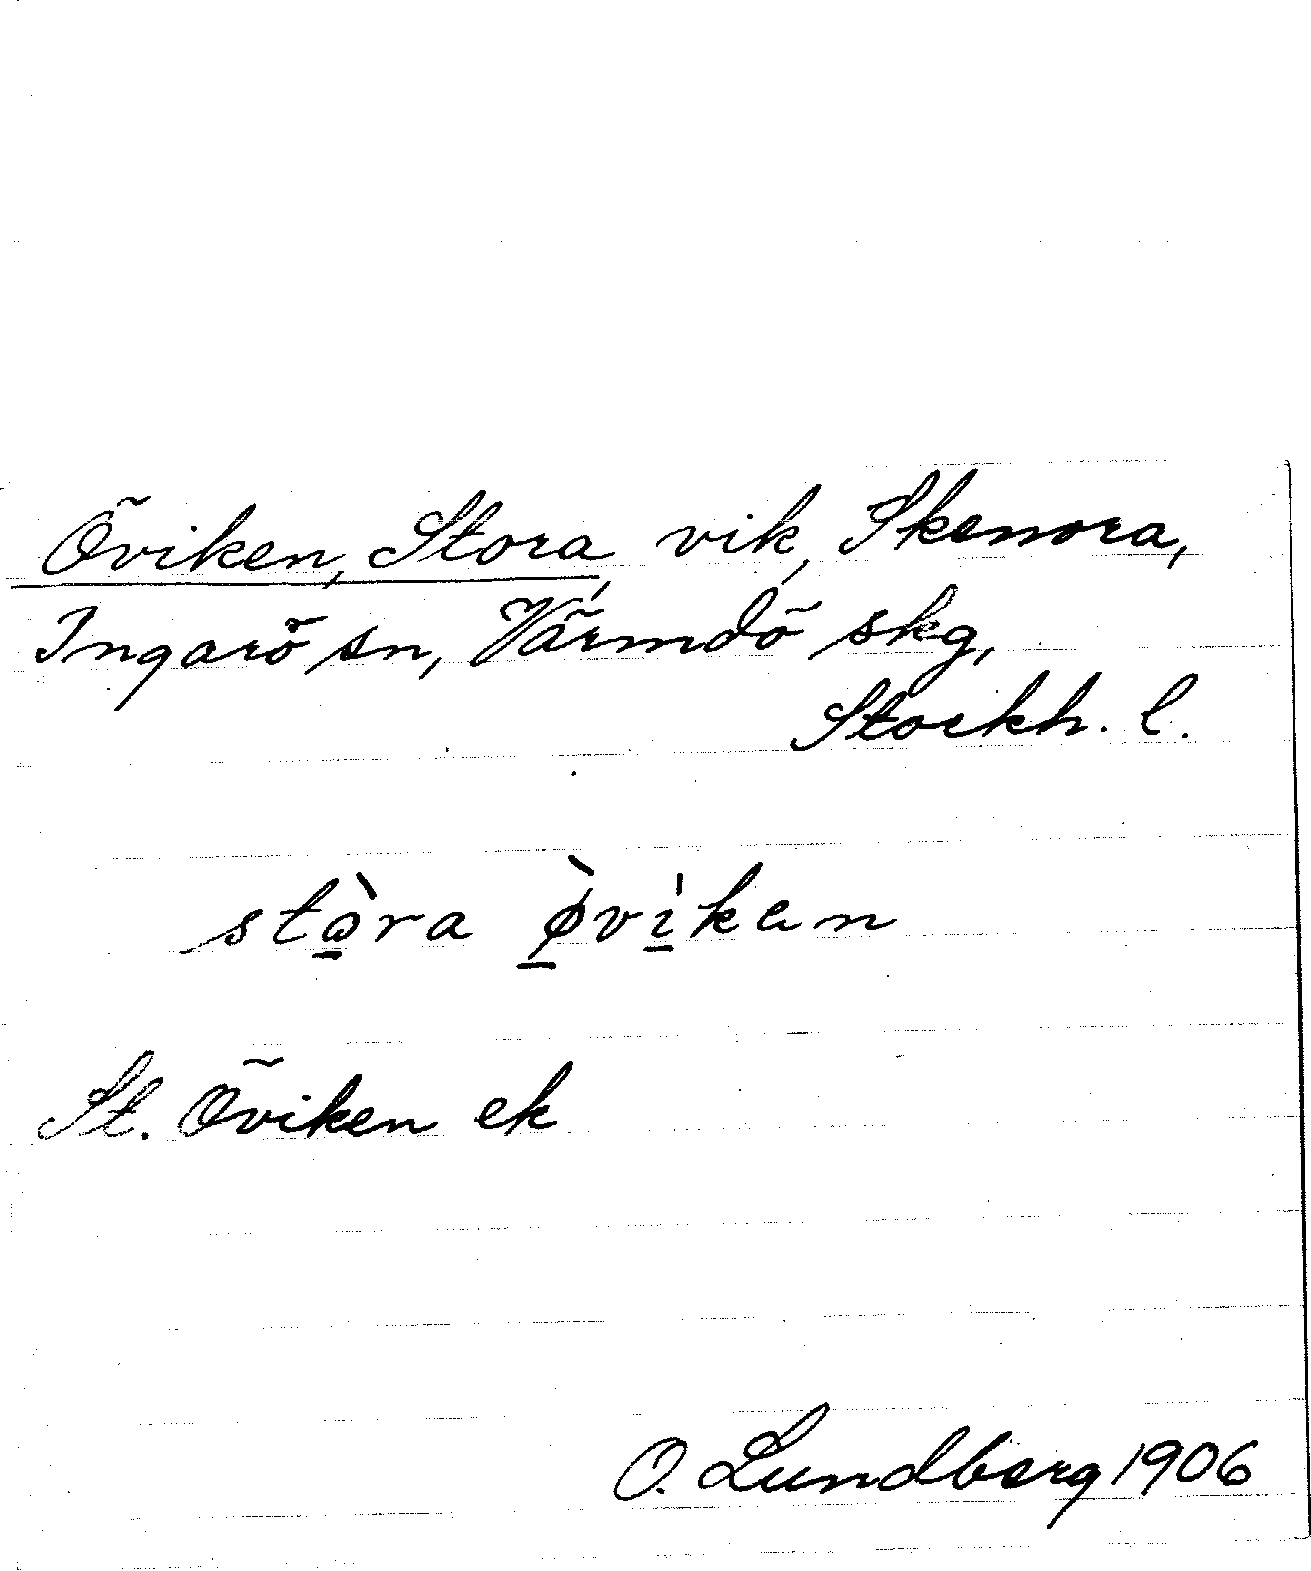 Öviken, Stora, vik, Skenora,
Ingarö sn, Värmdö skg,
Stockh. l.
stὼ̱ra ø̱̀vi̱̍ken
St. Öviken ek
O. Lundberg 1906